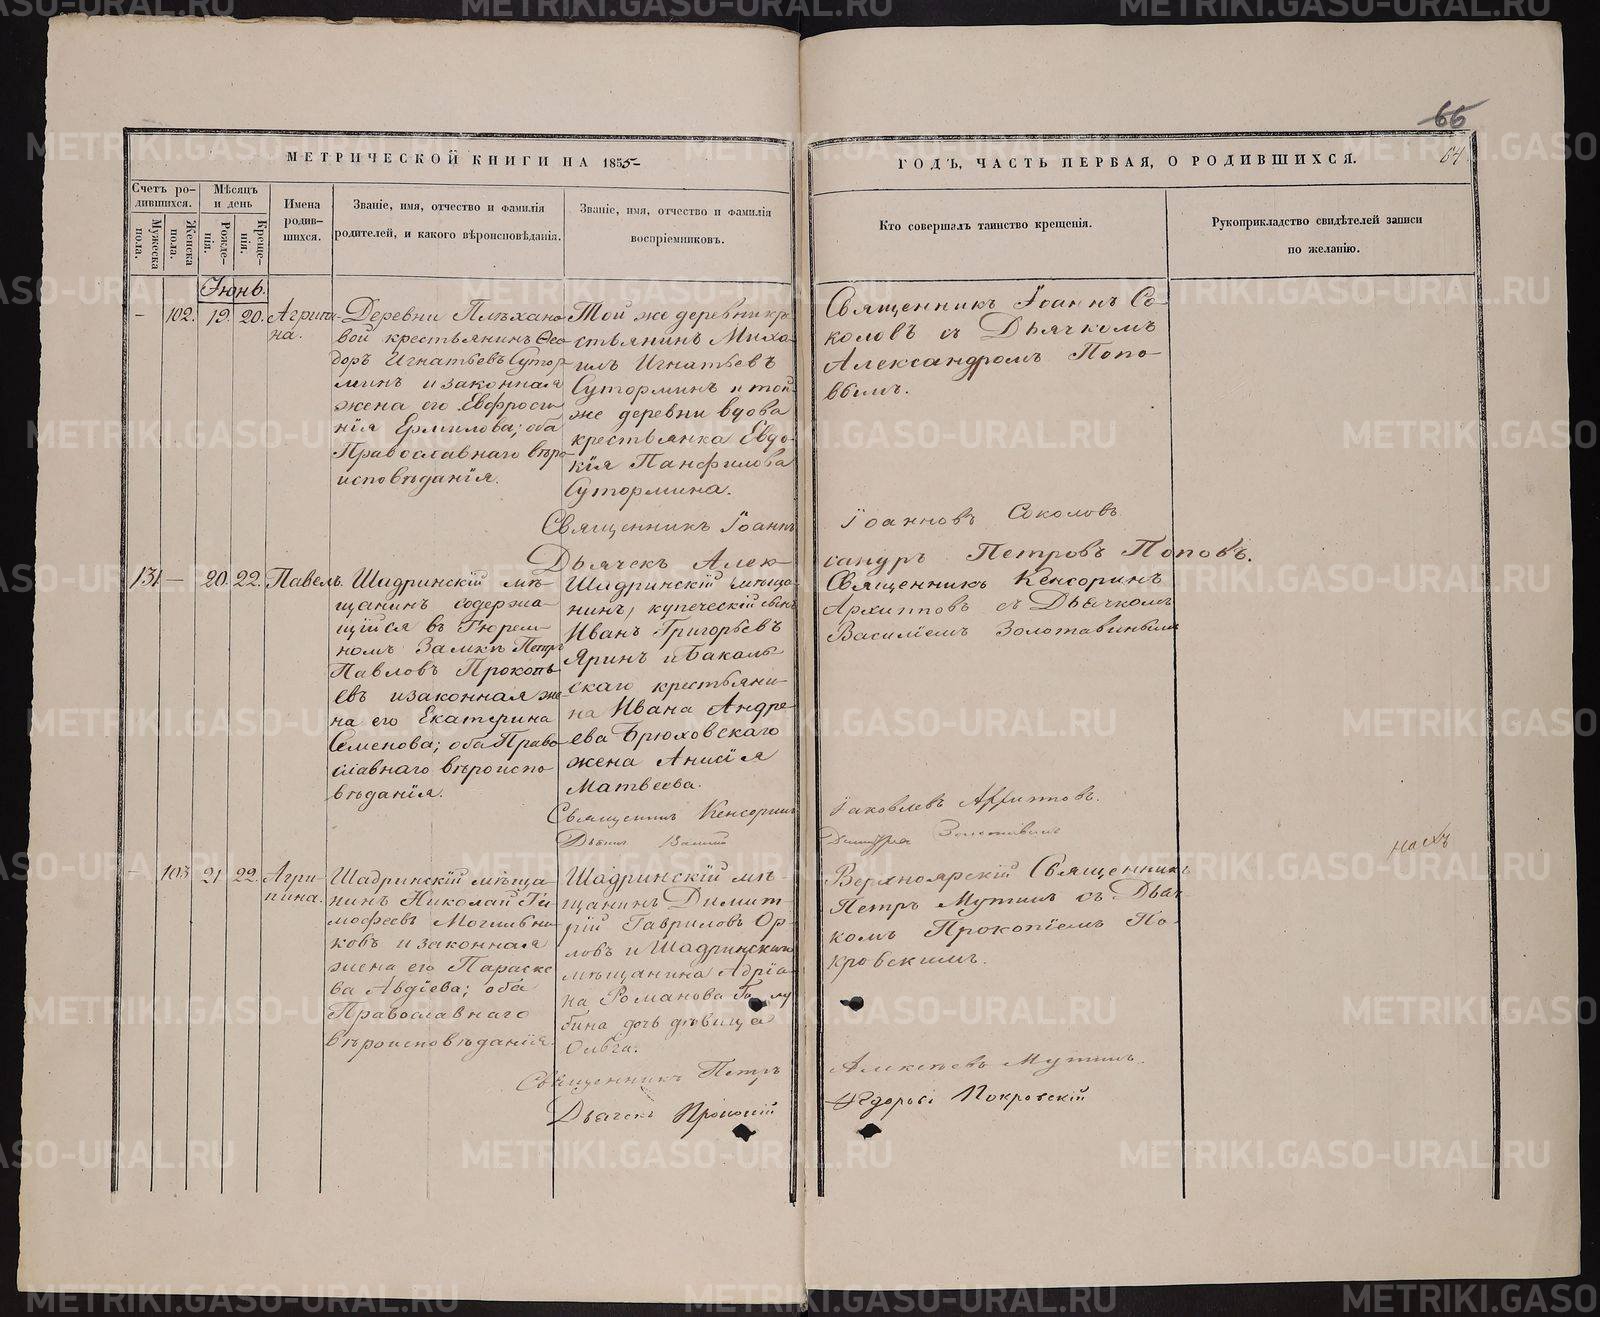 66
64
МЕТРИЧЕСКОЙ КНИГИ НА 1855
ГОДЪ, ЧАСТЬ ПЕРВАЯ, О РОДИВШИХСЯ.
Счетъ ро-
дившихся.
Мужеска
пола.
Женска
пола.
Мѣсяцъ
и день
Рожде-
нія.
Креще-
нія.
Имена
родив-
шихся.
Званіе, имя, отчество и фамилія
родителей, и какого вѣроисповѣданія.
Званіе, имя, отчество и фамилія
воспріемниковъ.
Кто совершалъ таинство крещенія.
Рукоприкладство свидѣтелей записи
по желанію.
Іюнь.
- 102. 19. 20.
Агрипи-
на.
Деревни Плѣхано-
вой крестьянинъ Ѳео-
доръ Игнатьевъ Сутор-
минъ и законная
жена его Евфроси-
нія Ермилова; оба
Православнаго вѣро-
исповѣданія.
Той же деревни кре-
стьянинъ Миха-
илъ Игнатьевъ
Суторминъ и той
же деревни вдова
крестьянка Евдо-
кія Панфилова
Сутормина.
Священникъ Іоаннъ Со-
коловъ съ Дьячкомъ
Александромъ Попо-
вымъ.
Священникъ Іоаннъ Іоанновъ Соколовъ
Дьячекъ Алек-сандръ Петровъ Поповъ.
131 — 20. 22.
Павелъ.
Шадринскій мѣ-
щанинъ содержа-
щійся въ Тюрем-
номъ Замкѣ Петръ
Павловъ Прокопь-
евъ и законная же-
на его Екатерина
Семенова; оба Право-
славнаго вѣроиспо-
вѣданія.
Шадринскій мѣща-
нинъ, купеческій сынъ
Иванъ Григорьевъ
Яринъ и Бакаль-
скаго крестьяни-
на Ивана Андре-
ева Брюховскаго
жена Анисія
Матвеева.
Священникъ Кенсоринъ
Архипповъ съ Дьячкомъ
Василіемъ Золотавинымъ
Священникъ Кенсоринъ Іаковлевъ Архипповъ.
- 103 21 22.
Агри-
пина.
Шадринскій мѣща-
нинъ Николай Ти-
мофеевъ Могильни-
ковъ и законная
жена его Параске-
ва Авдіева; оба
Православнаго
вѣроисповѣданія.
Шадринскій мѣ-
щанинъ Димит-
рій Гавриловъ Ор-
ловъ и Шадринскаго
мѣщанина Адріа-
на Романова Голу-
бина дочь дѣвица
Ольга.
Верхноярскій Священникъ
Петръ Мутинъ съ Дьяч-
комъ Прокопіемъ По-
кровскимъ.
Священникъ Петръ Алексѣевъ Мутинъ.
Дьячекъ Прокопій Покровскій